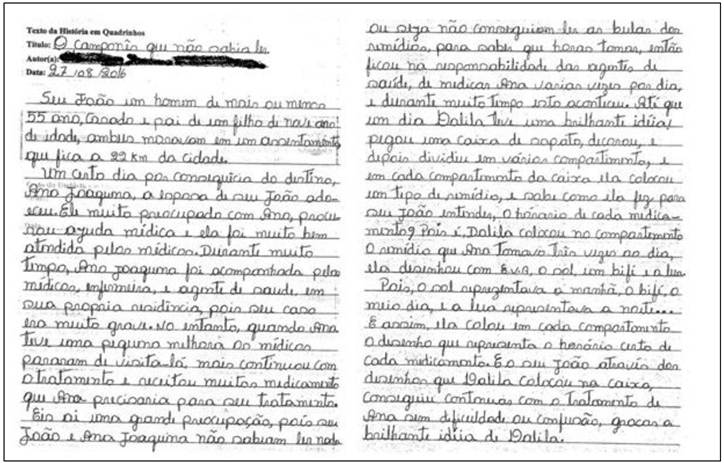 Texto da História em Quadrinhos
Título: O camponês que não sabia ler
Autor(a):
Data: 27/08/2016
Seu João um homem de mais ou menos
55 ano, Casado e pai de um filho de nove ano
de idade, ambos moravam em um assentamento
que fica a 22 km da cidade.
Um certo dia por consequência do destino,
Ana Joaquina, a esposa de seu João ado-
eceu. Ele muito preocupado com Ana, procu
rou ajuda médica e ela foi muito bem
atendida pelos médicos. Durante muito
tempo, Ana Joaquina foi acompanhada pelos
médicos, enfermeira, e agente de saúde em
sua propria residência, pois seu caso
era muito grave. No entanto, quando Ana
teve uma pequena melhora os médicos
pararam de visita-lá, mais continuou com
o tratamento e receitou muitos medicamento
que Ana precisaria para seu tratamento.
Eis ai uma grande preocupação, pois seu
João e Ana Joaquina não sabiam ler nada
ou seja não conseguiam ler as bulas dos
remédios, para saber que horas tomar, então
ficou na responsabilidade das agentes de
saúde, de medicar Ana varias vezes por dia,
e durante muito tempo isto aconteceu. Até que
um dia Dalila teve uma brilhante idéia,
pegou uma caixa de sapato, decorou, e
depois dividiu em vários compartimento, e
em cada compartimento da caixa ela colocou
um tipo de remédio, e sabe como ela fez para
seu João entender, o horário de cada medica-
mento? Pois é, Dalila colocou no compartimento
o remédio que Ana tomava três vezes ao dia,
ela desenhou com E.V.A, o sol, um bife e a lua.
Pois, o sol representava a manhã, o bife, o
meio dia, e a lua representava a noite...
E assim, ela colou em cada compartimento
o desenho que representa o horário certo de
cada medicamento. E o seu João através dos
desenhos que Dalila colocou na caixa,
conseguiu continuar com o tratamento de
Ana sem dificuldade ou confusão, graças a
brilhante idéia de Dalila.